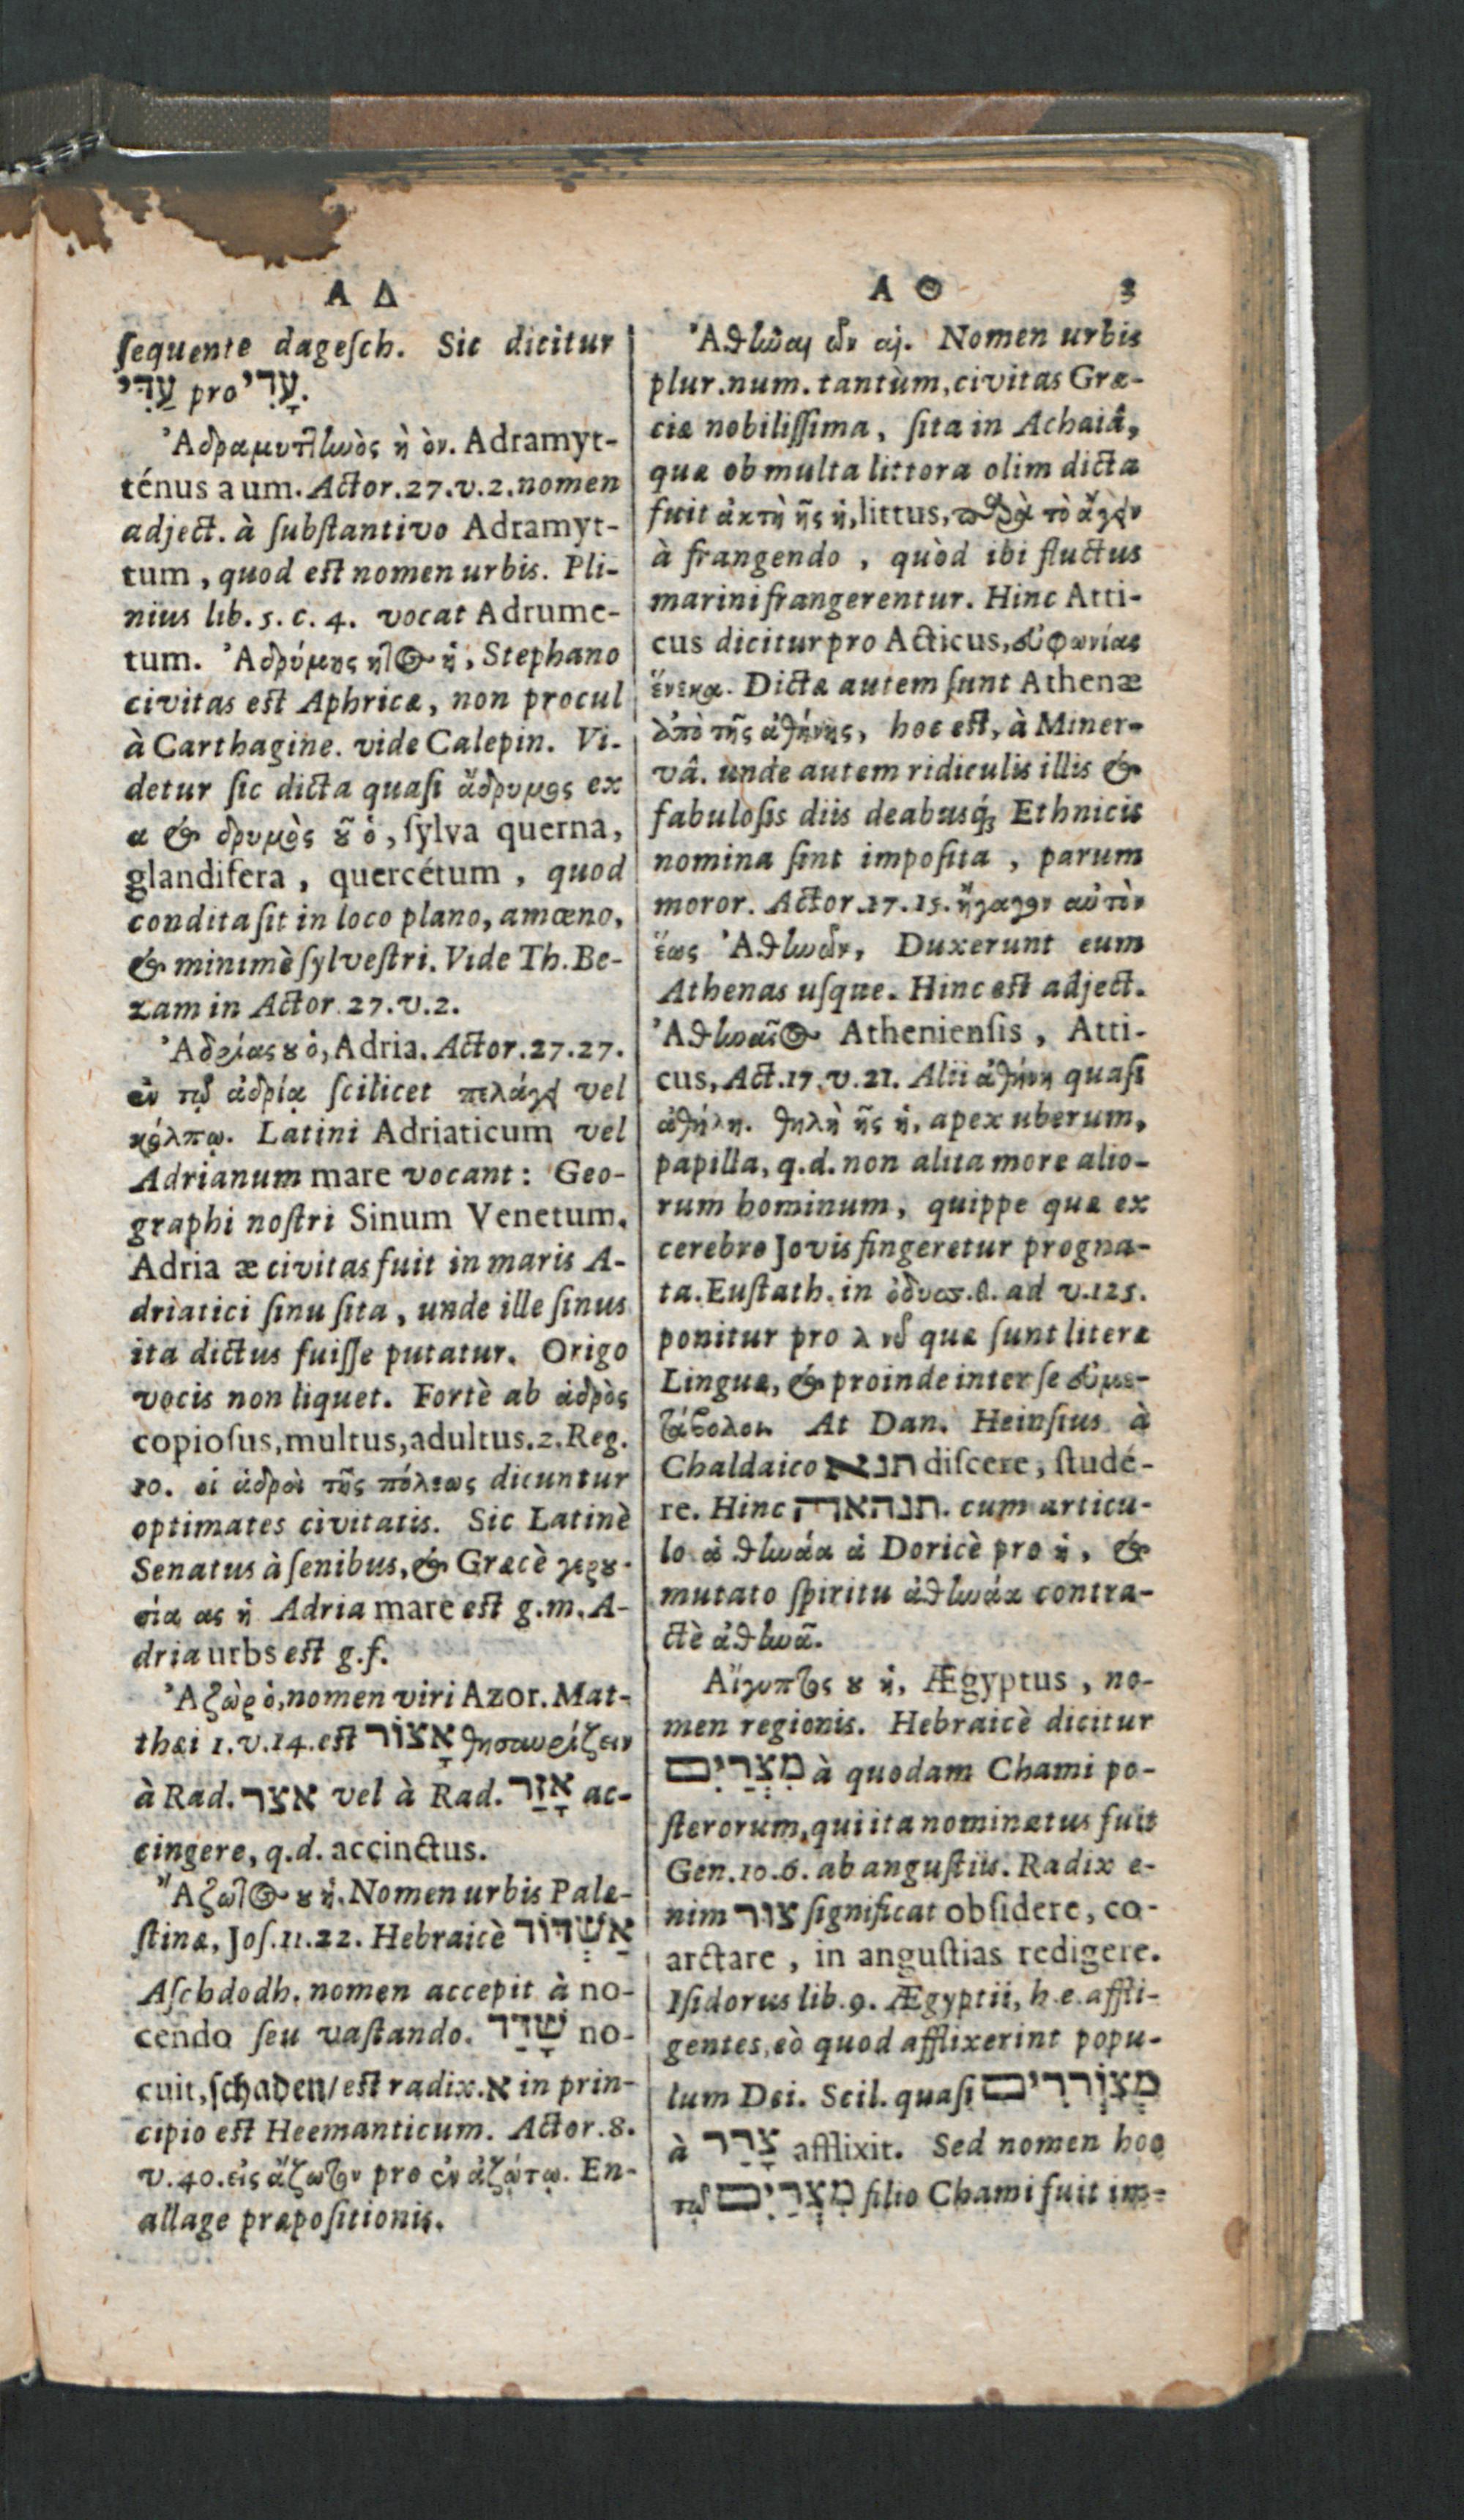 Α Δ
sequente dagesch. Sic dicitur
עַדִּי pro עָדִי.
Ἀδραμυττηνὸς ὴ ὸν. Adramyt-
ténus a um. Actor. 27. v. 2. nomen
adject. à substantivo Adramyt-
tum, quod est nomen urbis. Pli-
nius lib. 5. c. 4. vocat Adrume-
tum. Ἀδρύμης ητος ἡ, Stephano
civitas est Aphricæ, non procul
à Carthagine. vide Calepin. Vi-
detur sic dicta quasi ἄδρυμος ex
α & δρυμὸς ȣ͂ ὁ, sylva querna,
glandifera, quercétum, quod
condita sit in loco plano, amœno,
& minimè sylvestri. Vide Th. Be-
zam in Actor. 27. v. 2.
Ἀδρίας ȣ ὁ, Adria. Actor. 27. 27.
ἐν τῷ ἀδρίᾳ scilicet πελάγει vel
κόλπῳ. Latini Adriaticum vel
Adrianum mare vocant: Geo-
graphi nostri Sinum Venetum.
Adria æ civitas fuit in maris A-
driatici sinu sita, unde ille sinus
ita dictus fuisse putatur. Origo
vocis non liquet. Fortè ab ἁδρὸς
copiosus, multus, adultus. 2. Reg.
10. οἱ ἁδροὶ τῆς πόλεως dicuntur
optimates civitatis. Sic Latinè
Senatus à senibus, & Græcè γερȣ-
σία ας ἡ Adria mare est g. m. A-
dria urbs est g. f.
Ἀζὼρ ὁ, nomen viri Azor. Mat-
thæi 1. v. 14. est אָצוֹר θησαυρίζειν
à Rad. אצר vel à Rad. אָזַר ac-
cingere, q.d. accinctus.
Ἄζωτος ȣ ἡ. Nomen urbis Palæ-
stinæ, Jos. 11. 22. Hebraicè אַשְׁדּוֹד
Aschdodh. nomen accepit à no-
cendo seu vastando. שָׁדַד no-
cuit, schaden/ est radix. א in prin-
cipio est Heemanticum. Actor. 8.
v. 40. εἰς ἄζωτον pro ἐν ἀζώτῳ. En-
allage præpositionis.
Α Θ 3
Ἀθῆναι ῶν αἱ. Nomen urbis
plur. num. tantùm, civitas Græ-
ciæ nobilissima, sita in Achaiâ,
quæ ob multa littora olim dicta
fuit ἀκτὴ ῆς ἡ, littus, παρὰ τὸ ἄγειν
à frangendo, quòd ibi fluctus
marini frangerentur. Hinc Atti-
cus dicitur pro Acticus, εὐφωνίας
ἕνεκα. Dictæ autem sunt Athenæ
ἀπὸ τῆς ἀθήνης, hoc est, à Miner-
vâ. unde autem ridiculis illis &
fabulosis diis deabusq; Ethnicis
nomina sint imposita, parum
moror. Actor. 17. 15. ἤγαγον αὐτὸν
ἕως Ἀθηνῶν, Duxerunt eum
Athenas usque. Hinc est adject.
Ἀθηναῖος Atheniensis, Atti-
cus, Act. 17. v. 21. Alii ἀθήνη quasi
ἀθήλη. θηλὴ ῆς ἡ, apex uberum,
papilla, q.d. non alita more alio-
rum hominum, quippe quæ ex
cerebro Jovis fingeretur progna-
ta. Eustath. in ὀδυσσ. θ. ad v. 125.
ponitur pro λ νῦ quæ sunt literæ
Linguæ, & proinde inter se εὐμε-
τάβολοι. At Dan. Heinsius à
Chaldaico תנא discere, studé-
re. Hinc תנהאויה. cum articu-
lo ἁ θηνάα ἁ Doricè pro ἡ, &
mutato spiritu ἀθηνάα contra-
ctè ἀθηνᾶ.
Αἴγυπτος ȣ ἡ, Ægyptus, no-
men regionis. Hebraicè dicitur
מִצְרַיִם à quodam Chami po-
sterorum, qui ita nominatus fuit
Gen. 10. 6. ab angustiis. Radix e-
nim צור significat obsidere, co-
arctare, in angustias redigere.
Isidorus lib. 9. Ægyptii, h.e. affli-
gentes, eò quod afflixerint popu-
lum Dei. Scil. quasi מְצוֹרְרִים
à צָרַר afflixit. Sed nomen hoc
τῷ מִצְרַיִם filio Chami fuit im-